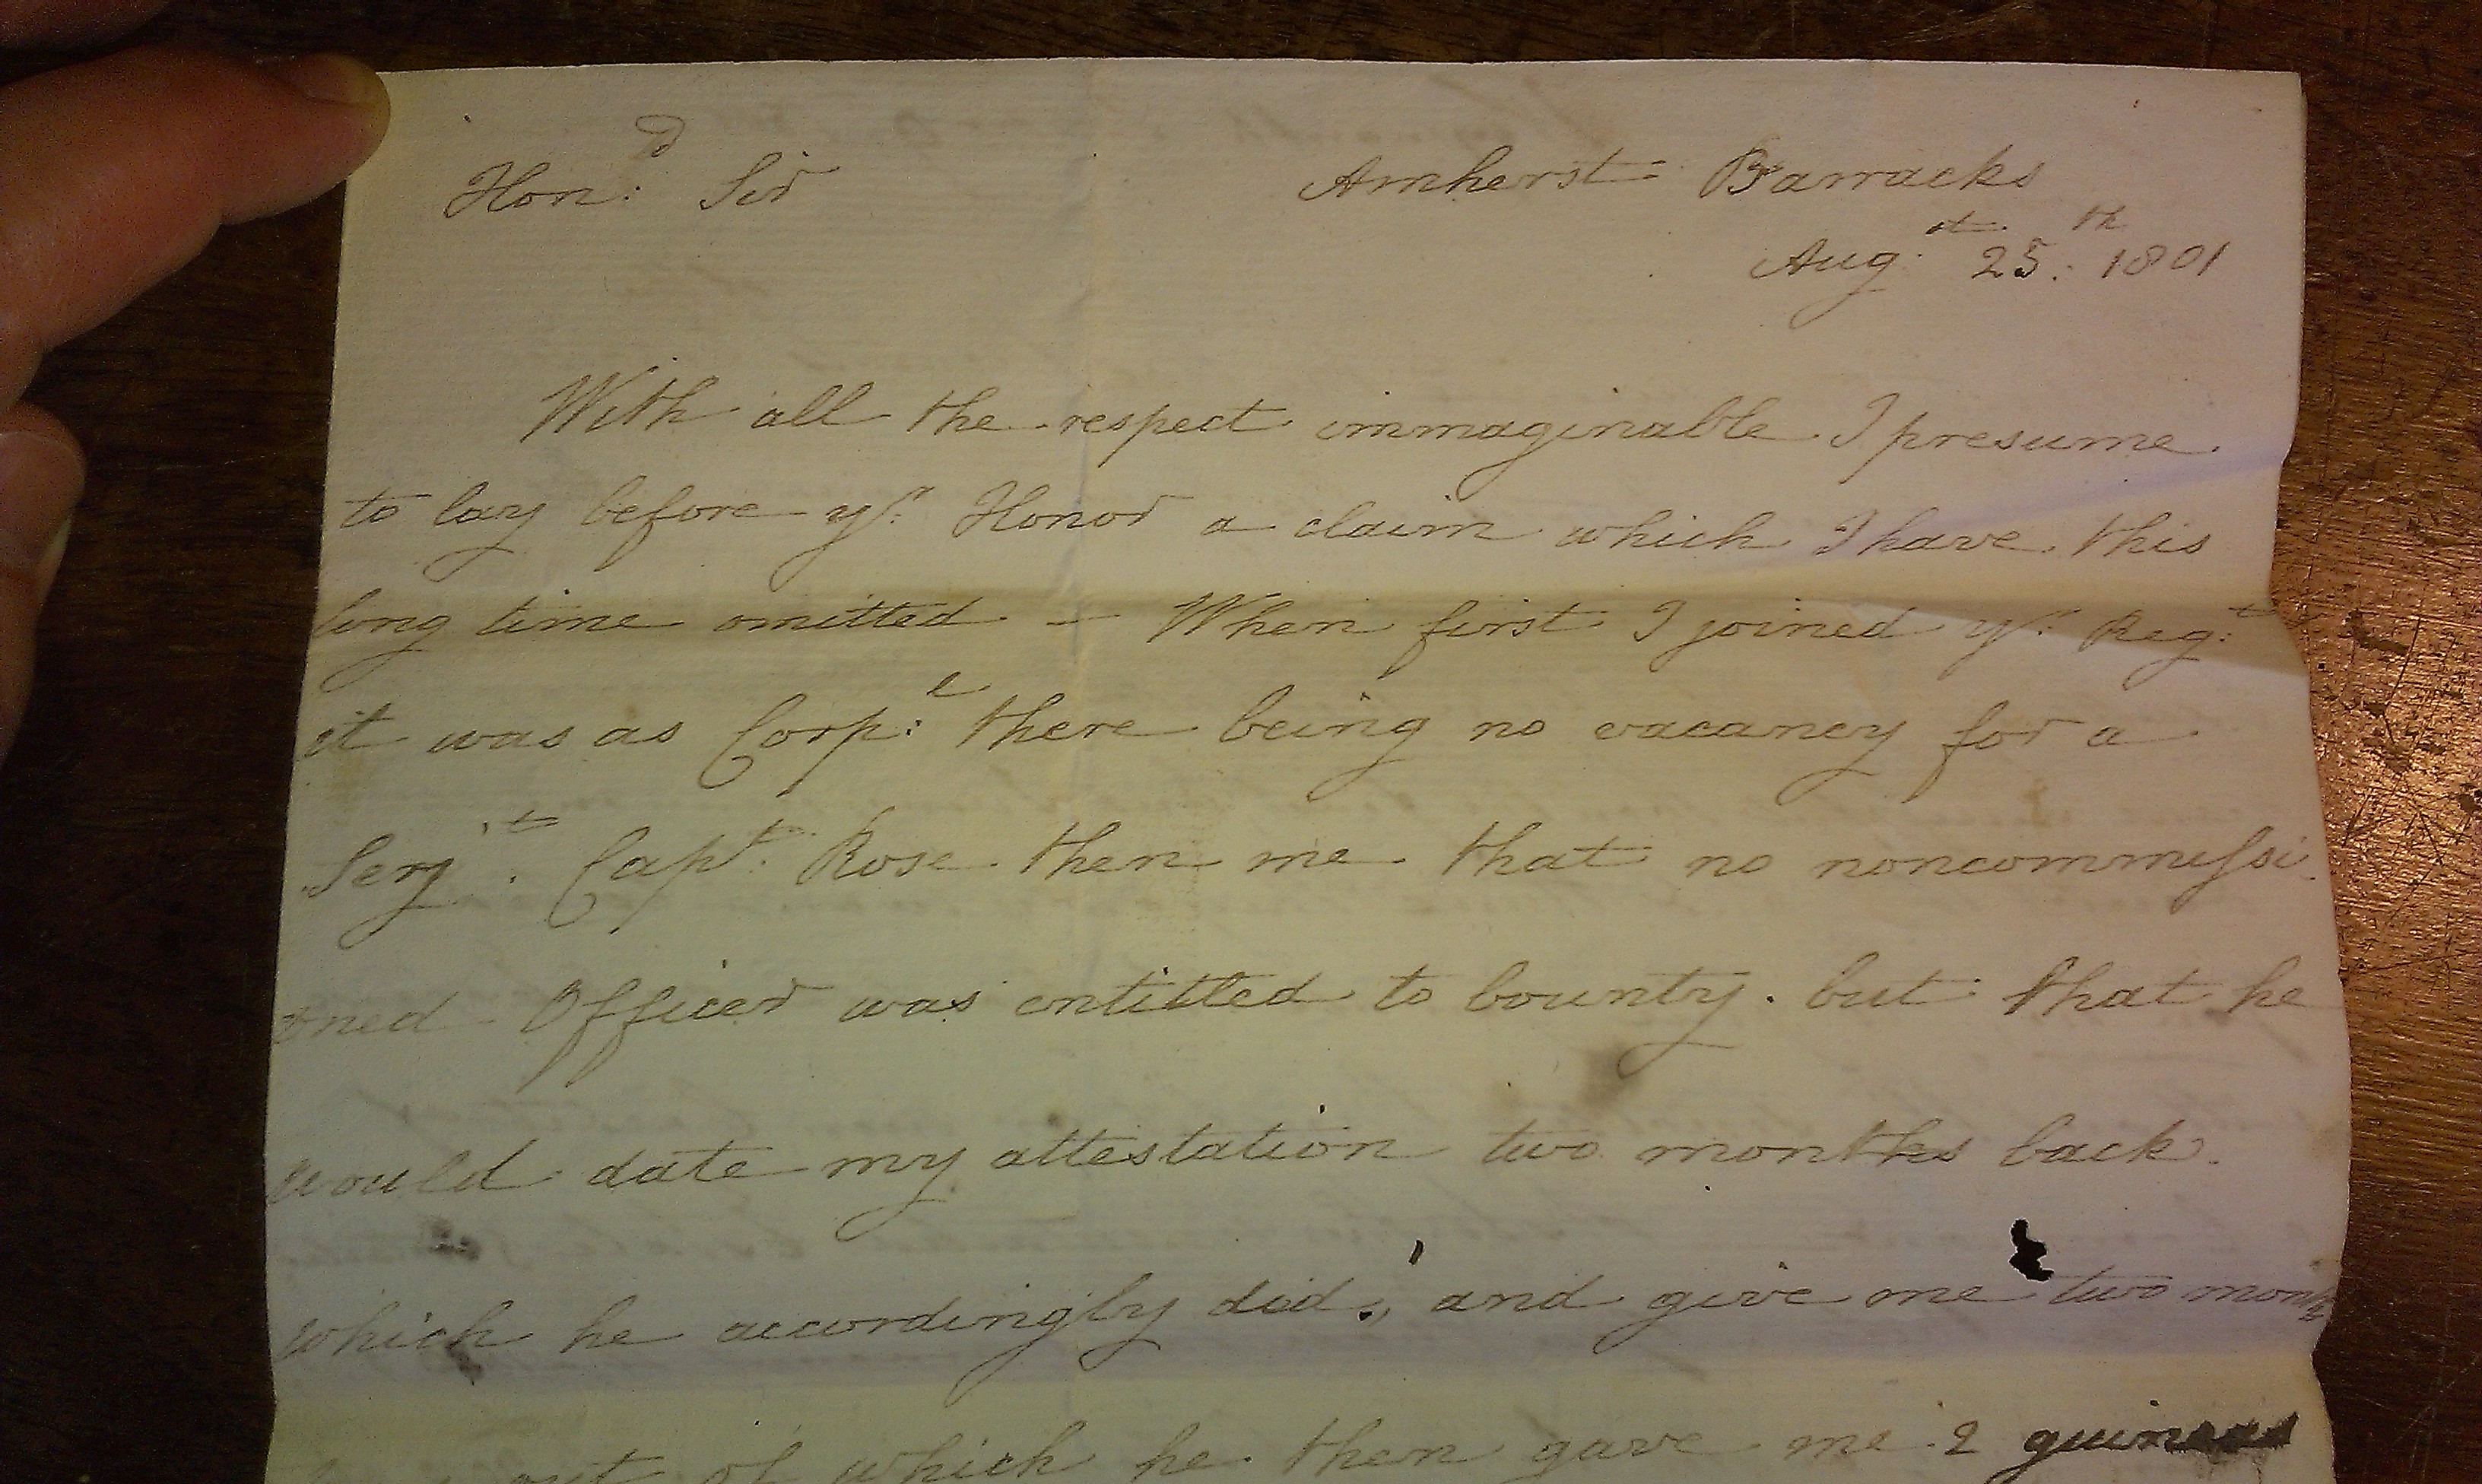 Hon:d Sir Amherst Barracks
Aug.st 25.th 1801
With all the respect immaginable I presume
to lay before yr. Honor a claim which I have this
long time omitted — When first I joined yr. Reg:t
it was as Corp:l there being no vacancy for a
Serj.t Capt. Rose then me that no noncommissi
oned Officer was entitted to bounty. but that he
would date my attestation two months back.
which he accordingly did, and give me two months
out of which he then gave me 2 guineas